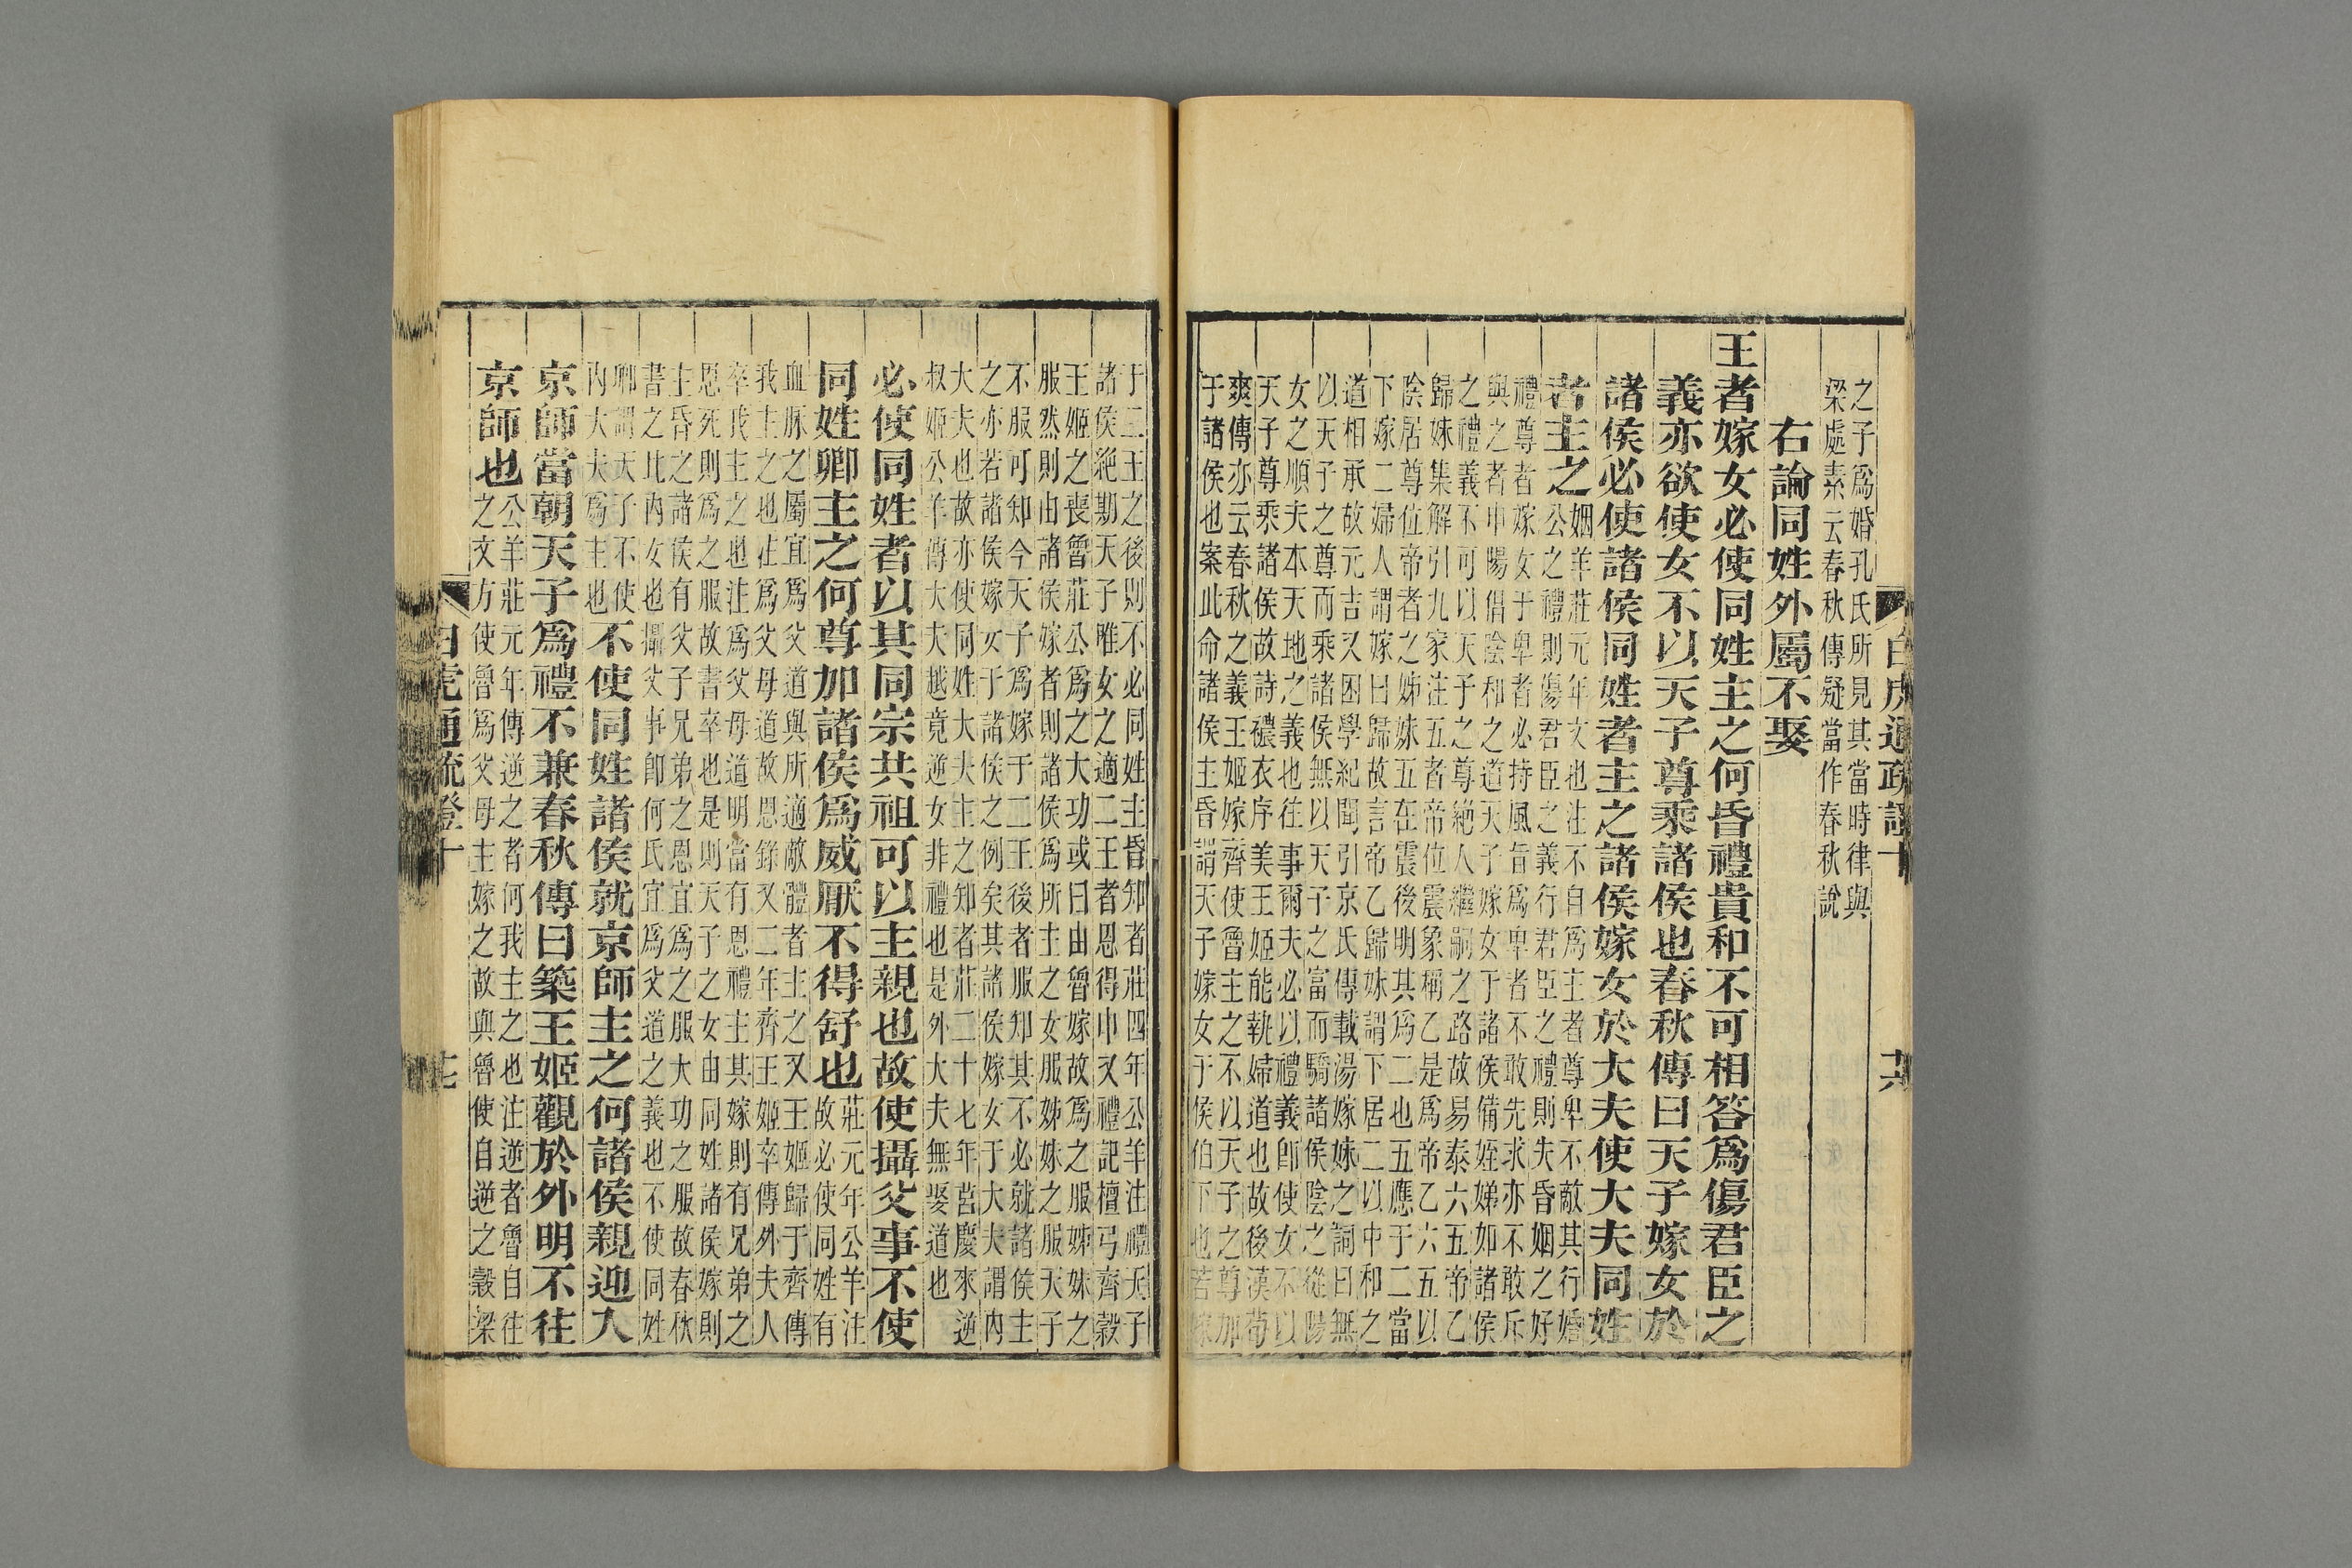 白虎通疏證十
之子爲婚孔氏所見其當時律與
梁處素云春秋傳疑當作春秋說
右論同姓外屬不娶
王者嫁女必使同姓主之何昏禮貴和不可相答爲傷君臣之
義亦欲使女不以天子尊乘諸侯也春秋傳曰天子嫁女於
諸侯必使諸侯同姓者主之諸侯嫁女於大夫使大夫同姓
者主之
公羊莊元年文也注不自爲主者尊卑不敵其行婚
姻之禮則傷君臣之義行君臣之禮則失昏姻之好
禮尊者嫁女于卑者必持風旨爲卑者不敢先求亦不敢斥
與之者申陽倡陰和之道天子嫁女于諸侯備姪娣如諸侯
之禮義不可以天子之尊絶人繼嗣之路故易泰六五帝乙
歸妹集解引九家注五者帝位震象稱乙是爲帝乙六五以
陰居尊位帝者之姊妹五在震後明其爲二也五應于二當
下嫁二婦人謂嫁曰歸故言帝乙歸妹謂下居二以中和之
道相承故元吉又困學紀聞引京氏傳載湯嫁妹之詞曰無
以天子之尊而乘諸侯無以天子之富而驕諸侯陰之從陽
女之順夫本天地之義也往事爾夫必以禮義卽使女不以
天子尊乘諸侯故詩襛衣序美王姬能執婦道也故後漢荀
爽傳亦云春秋之義王姬嫁齊使魯主之不以天子之尊加
于諸侯也案此命諸侯主昏謂天子嫁女于侯伯下也若
于三王之後則不必同姓主昏知者莊四年公羊注禮天子
諸侯絶期天子唯女之適二王者恩得申又禮記檀弓齊穀
王姬之喪魯莊公爲之大功或曰由魯嫁故爲之服姊妹之
服然則由諸侯嫁者則諸侯爲所主之女服姊妹之服天子
不服可知今天子爲嫁于二王後者服知其不必就諸侯主
之亦若諸侯嫁女于諸侯之例矣其諸侯嫁女于大夫謂內
大夫也故亦使同姓大夫主之知者莊二十七年莒慶來逆
叔姬公羊傳大夫越竟逆女非禮也是外大夫無娶道也
必使同姓者以其同宗共祖可以主親也故使攝父事不使
同姓卿主之何尊加諸侯爲威厭不得舒也
莊元年公羊注
故必使同姓有
血脉之屬宜爲父道與所適敵體者主之又王姬歸于齊傳
我主之也注爲父母道故恩錄又二年齊王姬卒傳外夫人
卒我主之也注爲父母道明當有恩禮主其嫁則有兄弟之
恩死則爲之服故書卒也是則天子之女由同姓諸侯嫁則
主昏之諸侯有父子兄弟之恩宜爲之服大功之服故春秋
書之比內女也攝父事卽何氏宜爲父道之義也不使同姓
卿謂天子不使
內大夫爲主也
不使同姓諸侯就京師主之何諸侯親迎入
京師當朝天子爲禮不兼春秋傳曰築王姬觀於外明不往
京師也
公羊莊元年傳逆之者何我主之也注逆者魯自往
之文方使魯爲父母主嫁之故與魯使自逆之穀梁